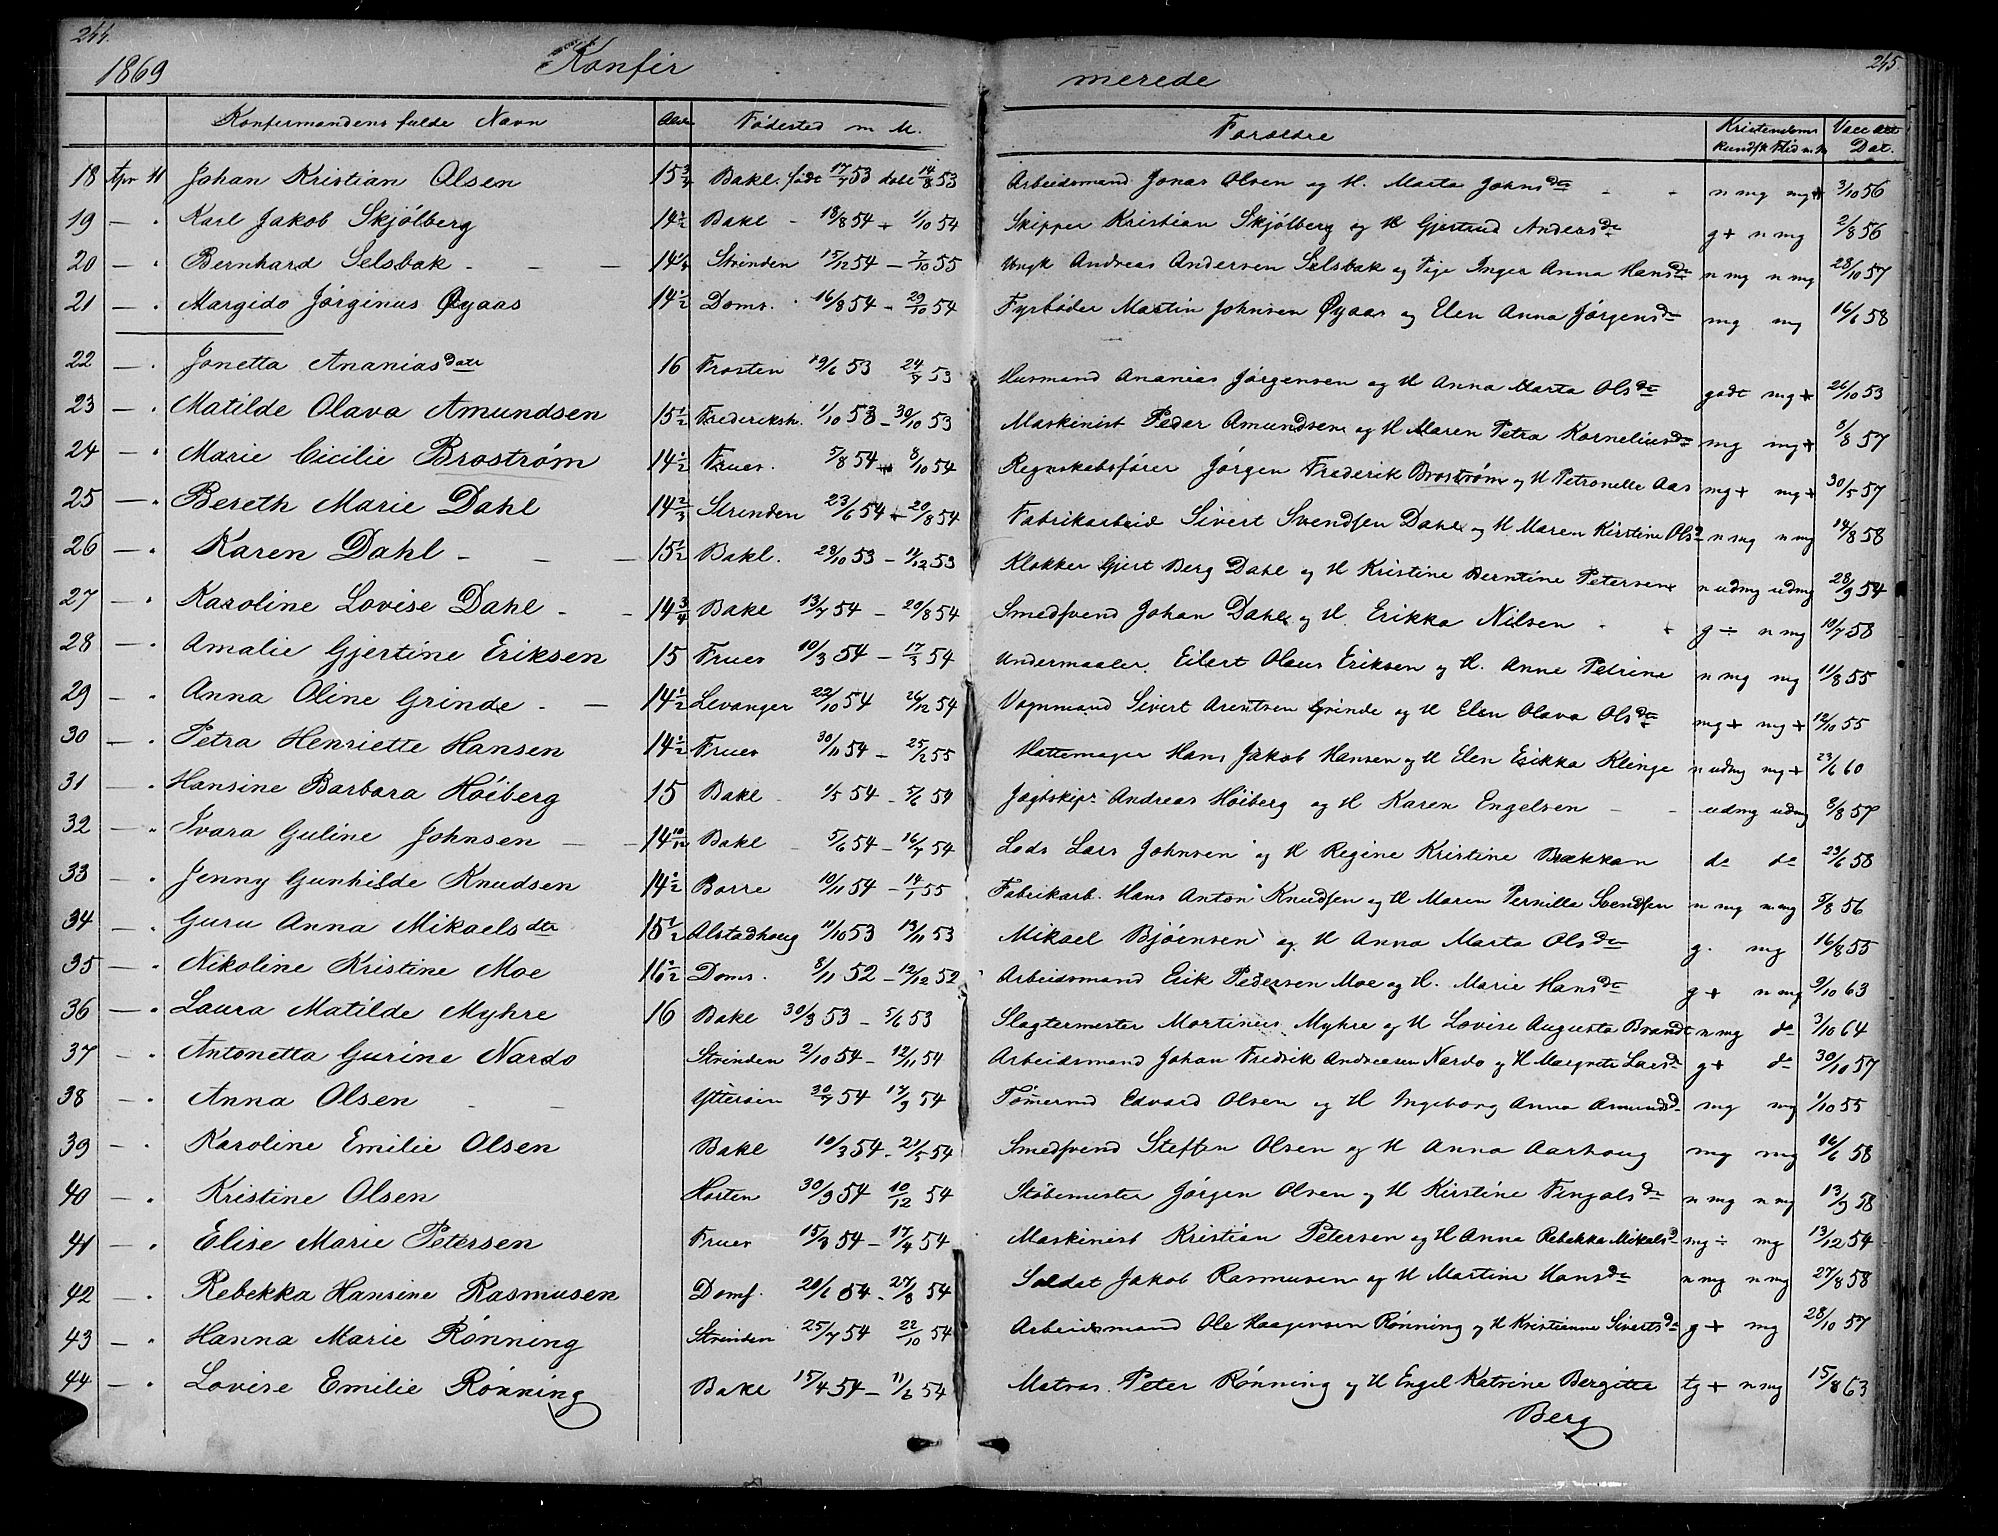 244.
245.
1869 Konfir merede
Konfirmandens fulde Navn Alder Fødested m M. Forældre Kristendoms Kundsk Flid m m Vacc Dat.
18 Apr 11 Johan Kristian Olsen 15 3/4 Bakl. født 17/7 53 døbt 14/8 53 Arbeidsmand Jonas Olsen og H. Marta Johnsdr n mg mg+ 3/10 56
19 — " Karl Jakob Skjølberg 14 1/2 Bakl - 18/8 54 + 1/10 54 Skipper Kristian Skjølberg og H Gjertrud Andersdr g+ n mg 2/8 56
20 — " Bernhard Selsbak - - — 14 1/4 Strinden 15/12 54 — 7/10 55 Ungk Andreas Andersen Selsbak og Pige Inger Anna Hansdr n mg n mg 28/10 57
21 — " Margido Jørginus Øyaas 14 1/2 Doms. 16/8 54 - 29/10 54 Fyrbøder Martin Johnsen Øyaas og Elen Anna Jørgensdr mg mg 16/6 58
22 — " Jonetta Ananiasdatr 16 Frosten 19/6 53 24/7 53 Husmand Ananias Jørgensen og H Anna Marta Olsdr godt mg+ 26/10 53
23 — " Matilde Olava Amundsen 15 1/2 Fredriksh. 1/10 53 - 30/10 53 Maskinist Peder Amundsen og H Maren Petra Korneliusdr mg mg+ 8/8 57
24 — " Marie Cicilie Broström 14 1/2 Frues. 5/8 54 + 8/10 54 Regnskabsfører Jørgen Frederik Broström og H Petronelle Aas mg+ mg+ 30/5 57
25 — " Bereth Marie Dahl 14 2/3 Strinden 23/6 54 + 20/8 54 Fabrikarbeid Sivert Svendsen Dahl og H Maren Kirstine Olsd n mg n mg 14/8 58
26 — " Karen Dahl - - — 15 1/2 Bakl. 28/10 53 — 11/12 53 Klokker Gjert Berg Dahl og H Kristine Berntine Petersen n udmg udmg 28/9 54
27 — " Karoline Lovise Dahl - - 14 3/4 Bakl 13/7 54 — 20/8 54 Smedsvend Johan Dahl og H. Erikka Nilsen g ÷ n mg 10/7 58
28 — " Amalie Gjertine Eriksen 15 Frues 10/3 54 — 17/3 54 Undermaaler Eilert Olaus Eriksen og H. Anne Petrine n mg mg 11/8 55
29 — " Anna Oline Grinde - — 14 1/2 Levanger 22/10 54 26/12 54 Vognmand Sivert Arentsen Grinde og H Elen Olava Olsdr mg+ mg+ 12/10 55
30 — " Petra Henriette Hansen 14 1/2 Frues 30/11 54 — 25/2 55 Hattemager Hans Jakob Hansen og H Elen Erikka Klinge n udmg mg+ 23/6 60
31 — " Hansine Barbara Höiberg 15 Bakl - 1/5 54 - 5/6 54 Jagtskipr Andreas Höiberg og H Karen Engelsen - - udmg udmg 8/8 57
32 — " Ivara Guline Johnsen — — 14 10/12 Bakl - 5/6 54 — 16/7 54 Lods Lars Johnsen og H Regine Kristine Brækkan do do 23/6 58
33 — " Jenny Gunhilde Knudsen 14 1/2 Borre 10/11 54 — 14/1 55 Fabrikarb. Hans Anton Knudsen og H Maren Pernille Svendsen n mg n mg 5/8 56
34 — " Guru Anna Mikaelsdtr 15 1/2 Alstadhoug 11/10 53 13/11 53 Mikael Bjørnsen og H Anna Marta Olsdr g. mg 16/8 55
35 — " Nikoline Kristine Moe 16 1/2 Doms. 8/11 52 — 12/12 52 Arbeidsmand Erik Pedersen Moe og H. Marie Hansdr g+ n mg 9/10 63
36 — " Laura Matilde Myhre 16 Bakl 30/3 53 — 5/6 53 Slagtermester Martinus Myhre og H Lovise Augusta Brandt n mg do 3/10 64
37 — " Antonetta Gurine Nardo Strinden 2/10 54 — 12/11 54 Arbeidsmand Johan Fredrik Andreasen Nardo og H Margrete Larsd g+ do 30/10 57
38 — " Anna Olsen - - Ytterøen 30/7 54 17/9 54 Tømermd Edvard Olsen og H Ingeborg Anna Amundsd mg mg 1/10 55
39 — " Karoline Emilie Olsen Bakl 10/3 54 - 21/5 54 Smedsvend Steffen Olsen og H Anna Aarhoug mg mg 16/6 58
40 — " Kristine Olsen Horten 30/9 54 10/12 54 Støbemester Jørgen Olsen og H Kirstine Fingalsdr n mg n mg 13/9 58
41 — " Elise Marie Petersen Frues 15/3 54 — 17/4 54 Maskinist Kristian Petersen og H Anna Rebekka Mikalsd mg ÷ mg 13/12 54
42 — " Rebekka Hansine Rasmusen Doms. 20/6 54 - 27/8 54 Soldat Jakob Rasmusen og H Martine Hansdr n mg n mg 27/8 58
43 — " Hanna Marie Rönning Strinden 25/7 54 22/10 54 Arbeidsmand Ole Haagensen Rönning og H Kristianne Sivertsd g+ mg 28/10 57
44 — " Lovise Emilie Rönning Bakl 15/4 54 — 11/6 54 Matros Peter Rönning og H Engel Katrine Bergitte tg+ n mg 15/8 63
Berg